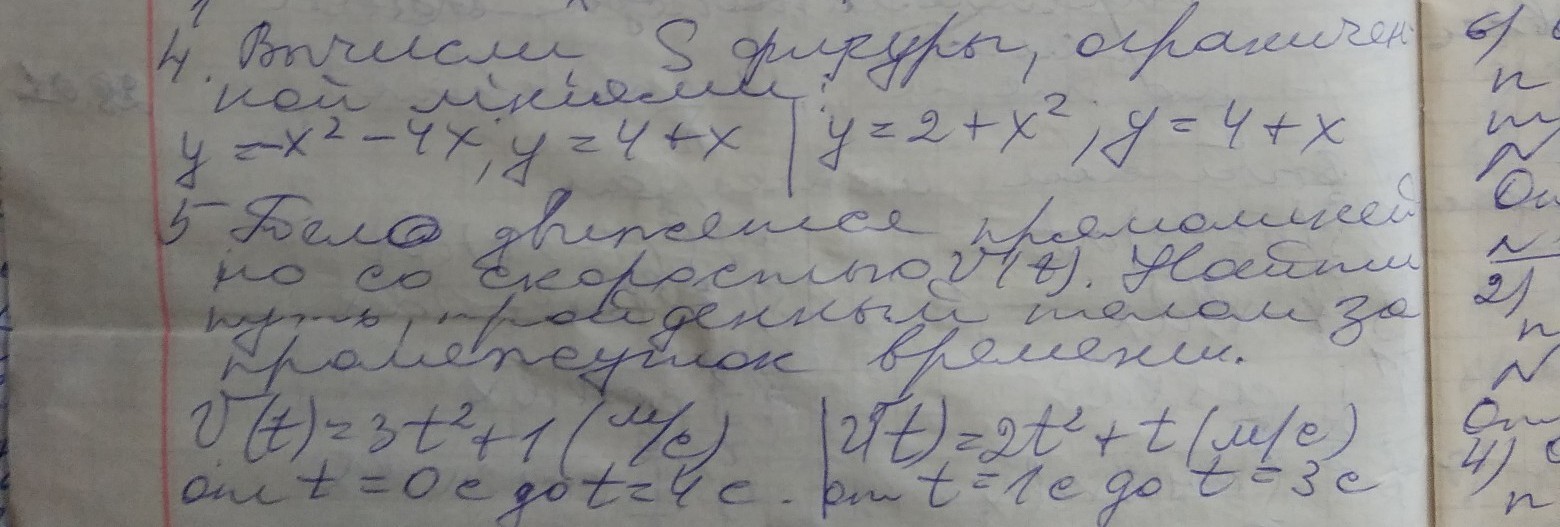 4. Вычисли S фигуры, ограничен
ной линиями:
y = -x² - 4x, y = 4 + x | y = 2 + x², y = 4 + x
5 Тело движется прямолиней
но со скоростью V(t). Найти
путь, пройденный телом за
промежуток времени.
V(t) = 3t² + 1 (м/с) | V(t) = 2t² + t (м/с)
от t = 0с до t = 4с. | от t = 1с до t = 3с
б)
п
m
N
От
N
2)
п
N
От
4)
п